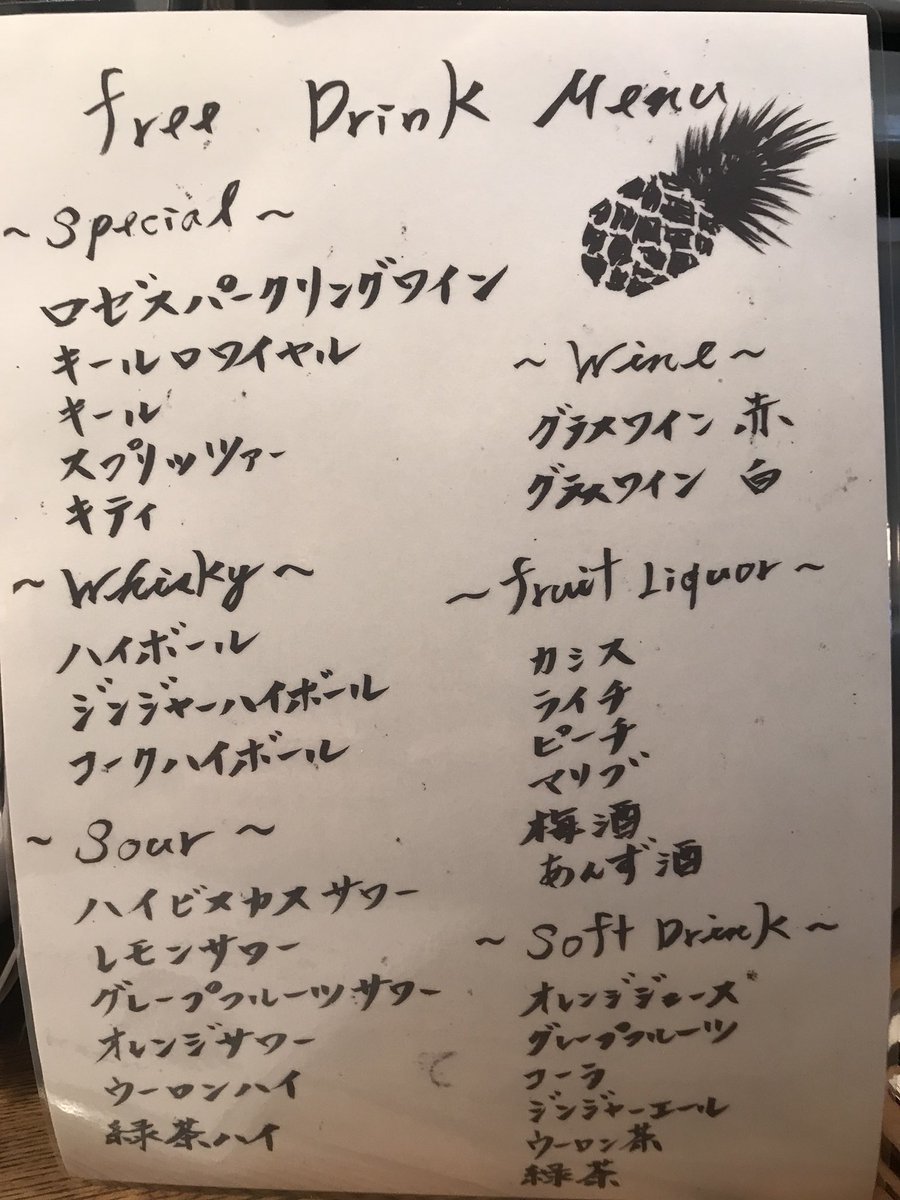 Free Drink Menu
~Special~
ロゼスパークリングワイン
キールロワイヤル
キール
スプリッツァー
キティ
~Whisky~
ハイボール
ジンジャーハイボール
コークハイボール
~Sour~
ハイビスカスサワー
レモンサワー
グレープフルーツサワー
オレンジサワー
ウーロンハイ
緑茶ハイ
~Wine~
グラスワイン 赤
グラスワイン 白
~Fruit Liquor~
カシス
ライチ
ピーチ
マリブ
梅酒
あんず酒
~Soft Drink~
オレンジジュース
グレープフルーツ
コーラ
ジンジャーエール
ウーロン茶
緑茶